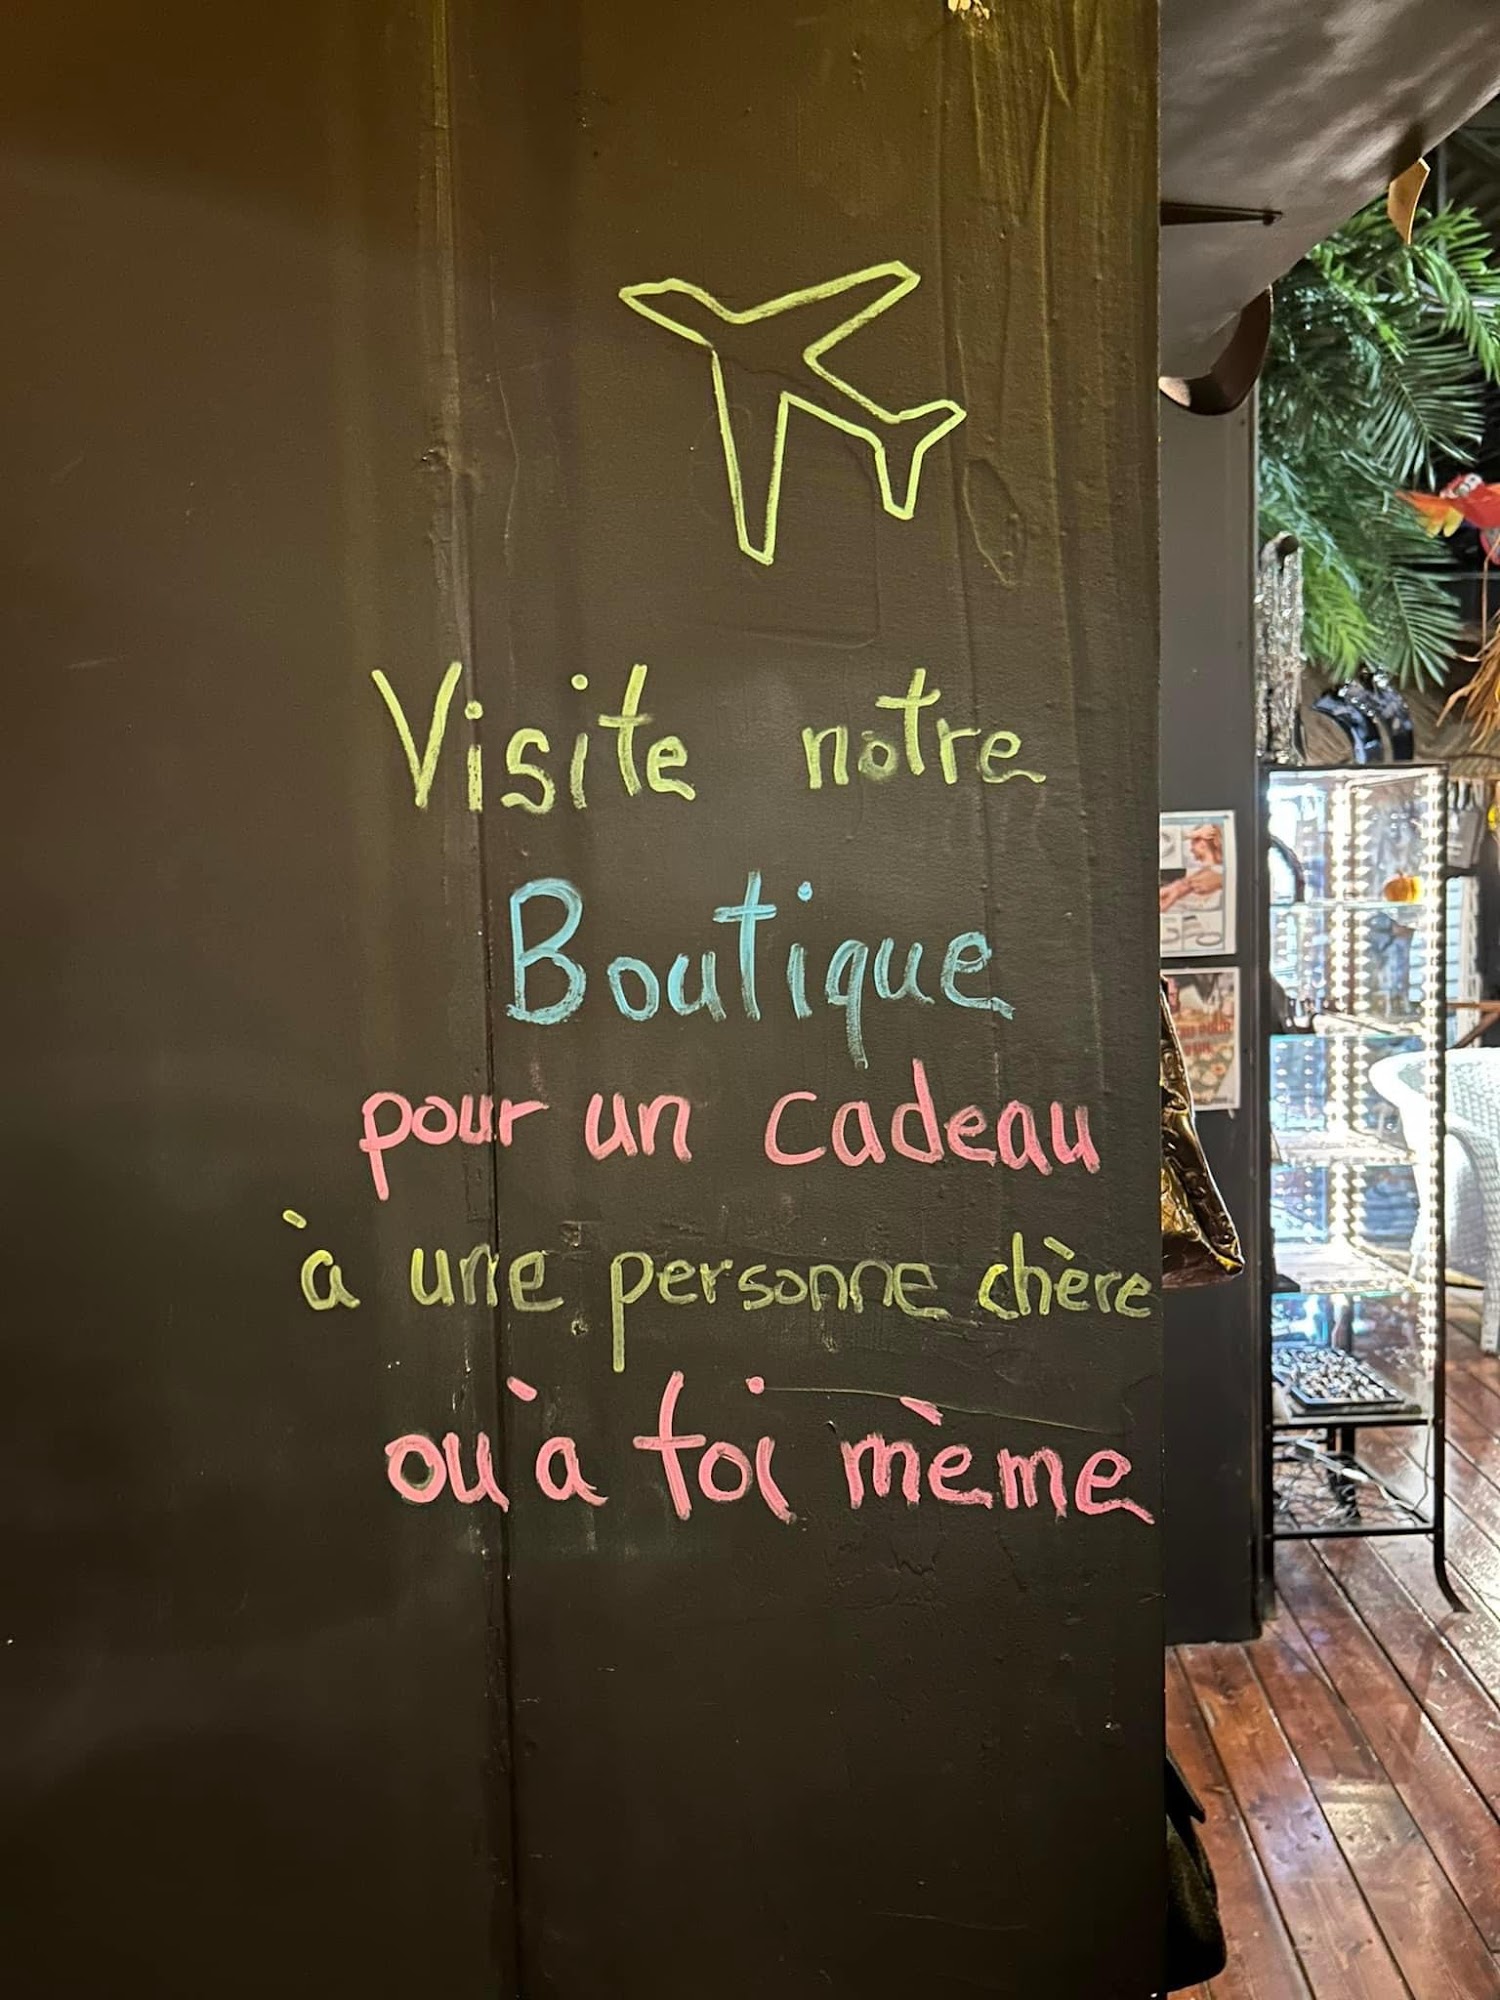 Visite notre
Boutique
pour un cadeau
à une personne chère
ou à toi mème